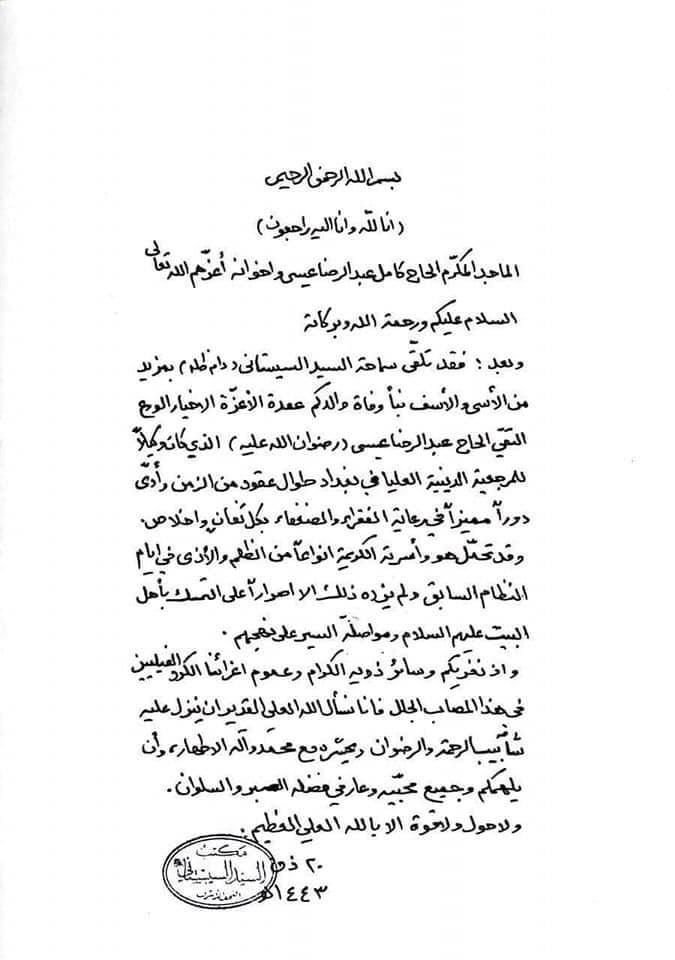 بسم الله الرحمن الرحيم
(انا لله وانا اليه راجعون)
الماجد المكرّم الحاج كامل عبدالرضا عيسى واخوانه أعزّهم الله تعالى
السلام عليكم ورحمة الله وبركاته
وبعد : فقد تلقّى سماحة السيد السيستاني (دام ظله) بمزيد
من الأسى والأسف نبأ وفاة والدكم عمدة الأعزّة الاخيار الورع
التقيّ الحاج عبدالرضا عيسى (رضوان الله عليه) الذي كان وكيلاً
للمرجعية الدينية العليا في بغداد طوال عقود من الزمن وأدّى
دوراً مميزاً في رعاية الفقراء والضعفاء بكل تفانٍ واخلاص.
وقد تحمّل هو وأسرته الكريمة انواعاً من الظلم والأذى في ايام
النظام السابق ولم يزده ذلك الا اصراراً على التمسك بأهل
البيت عليهم السلام ومواصلة السير على نهجهم .
واذ نعزيكم وسائر ذويه الكرام وعموم اعزائنا الكرد الفيليين
في هذا المصاب الجلل فانا نسأل الله العلي القدير ان ينزل عليه
شآبيب الرحمة والرضوان ويحشره مع محمد وآله الاطهار، وأن
يلهمكم وجميع محبّيه وعارفي فضله الصبر والسلوان .
ولا حول ولا قوة الا بالله العلي العظيم .
٢٠ ذق
١٤٤٣
مكتب
السيد السيستاني
النجف الاشرف